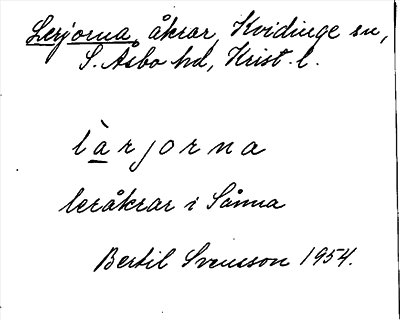 Lerjorna, åkrar, Kvidinge sn,
S. Åsbo hd, Krist. l.
làrjorna
leråkrar i Sånna
Bertil Svensson 1954.